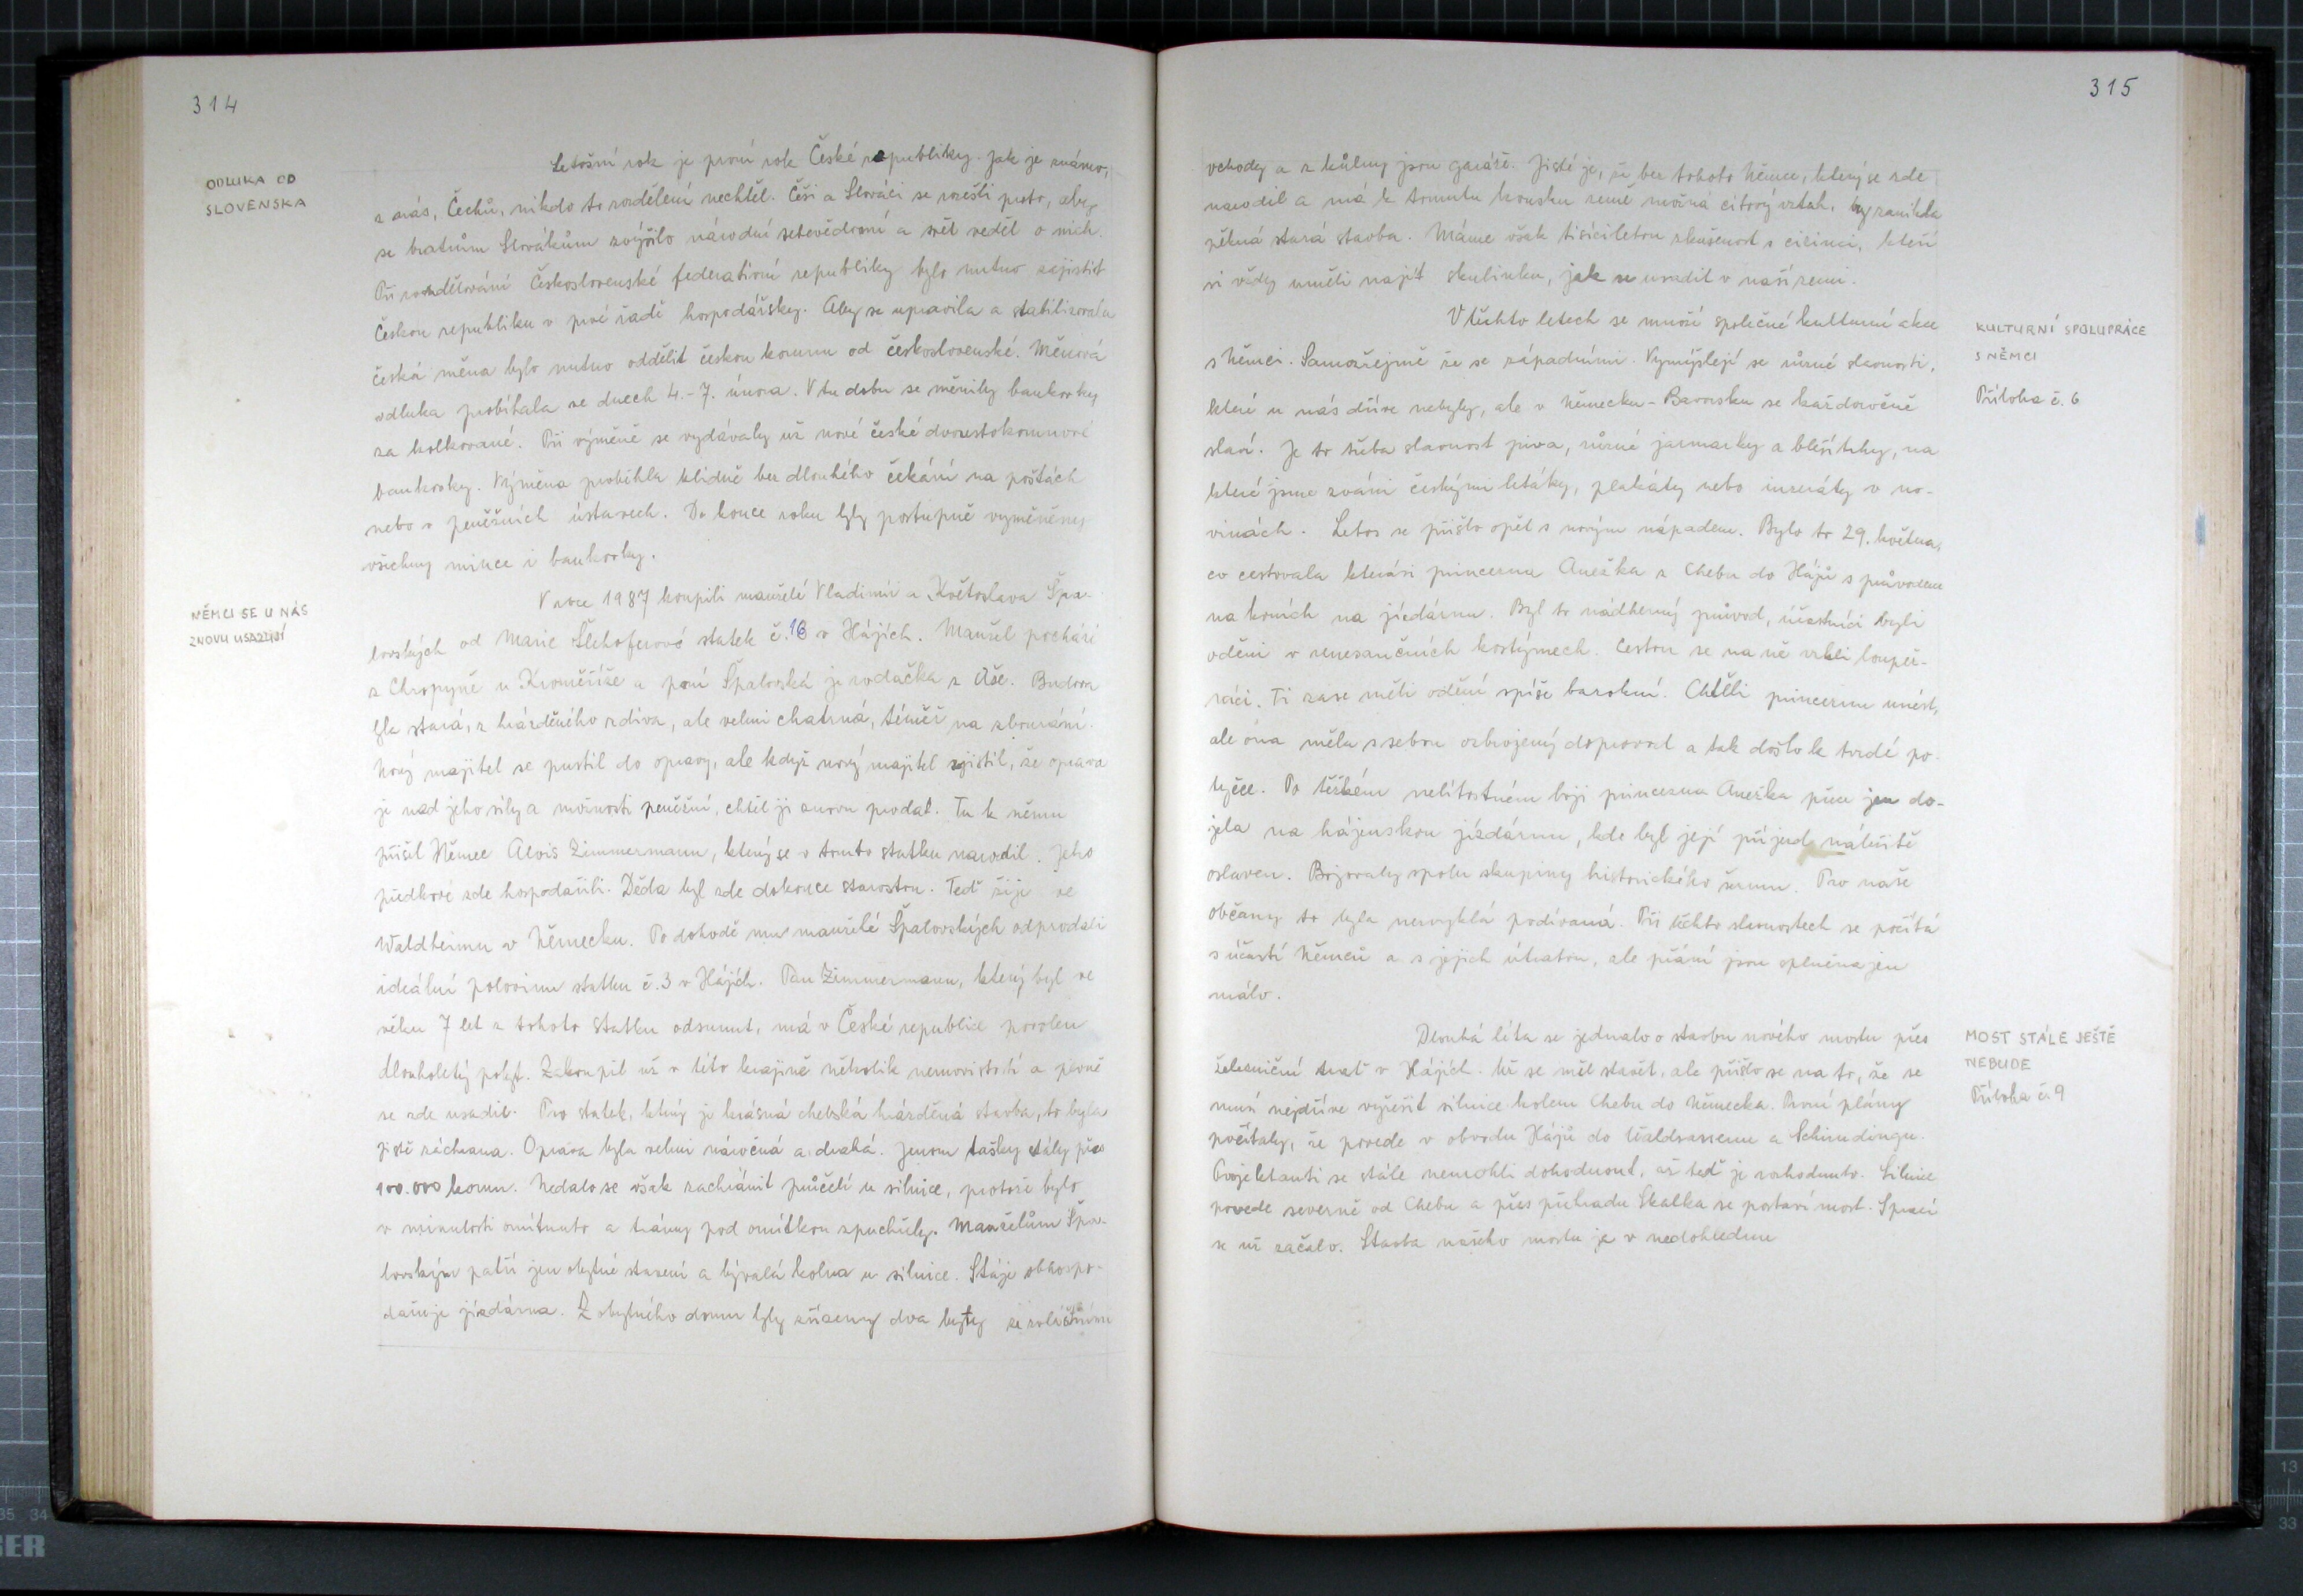 314
ODLUKA OD
SLOVENSKA
Letošní rok je první rok České republiky. Jak je známo,
z nás, Čechů, nikdo to rozdělení nechtěl. Češi a Slováci se rozešli proto, aby
se bratrům Slovákům zvýšilo národní sebevědomí a svět věděl o nich.
Při rozdělování Československé federativní republiky bylo nutno zajistit
Českou republiku v prvé řadě hospodářsky. Aby se upravila a stabilizovala
česká měna bylo nutno oddělit českou korunu od československé. Měnová
odluka probíhala ve dnech 4.-7. února. V tu dobu se měnily bankovky
za kolkované. Při výměně se vydávaly už nové české dvoustokorunové
bankovky. Výměna proběhla klidně bez dlouhého čekání na poštách
nebo v peněžních ústavech. Do konce roku byly postupně vyměněny
všechny mince i bankovky.
NĚMCI SE U NÁS
ZNOVU USAZUJÍ
V roce 1987 koupili manželé Vladimír a Květoslava Špa-
lovských od Marie Šlehoferové statek č. 16 v Hájích. Manžel pochází
z Chropyně u Kroměříže a paní Špalovská je rodačka z Aše. Budova
byla stará, z hrázděného zdiva, ale velmi chatrná, téměř na zbourání.
Nový majitel se pustil do opravy, ale když nový majitel zjistil, že oprava
je nad jeho síly a možnosti peněžní, chtěl ji znovu prodat. Tu k němu
přišel Němec Alois Zimmermann, který se v tomto statku narodil. Jeho
předkové zde hospodařili. Děda byl zde dokonce starostou. Teď žije ve
Waldheimu v Německu. Po dohodě mu manželé Špalovských odprodali
ideální polovinu statku č. 3 v Hájích. Pan Zimmermann, který byl ve
věku 7 let z tohoto statku odsunut, má v České republice povolen
dlouholetý pobyt. Zakoupil už v této krajině několik nemovitostí a pevně
se zde usadil. Pro statek, který je krásná chebská hrázděná stavba, to byla
jistě záchrana. Oprava byla velmi náročná a drahá. Jenom tašky stály přes
100.000 korun. Nedalo se však zachránit průčelí u silnice, protože bylo
v minulosti omítnuto a trámy pod omítkou zpuchřely. Manželům Špa-
lovským patří jen obytné stavení a bývalá kolna u silnice. Stáje obhospo-
dařuje jízdárna. Z obytného domu byly zřízeny dva byty se zvláštními
315
vchody a z kůlny jsou garáže. Jisté je, že bez tohoto Němce, který se zde
narodil a má k tomuto kousku země možná citový vztah, by zanikla
pěkná stará stavba. Máme však tisíciletou zkušenost s cizinci, kteří
si vždy uměli najít skulinku, jak se usadit v naší zemi.
V těchto letech se množí společné kulturní akce
s Němci. Samozřejmě že se západními. Vymýšlejí se různé slavnosti,
které u nás dříve nebyly, ale v Německu - Bavorsku se každoročně
slaví. Je to třeba slavnost piva, různé jarmarky a bleší trhy, na
které jsme zváni českými letáky, plakáty nebo inzeráty v no-
vinách. Letos se přišlo opět s novým nápadem. Bylo to 29. května,
co cestovala kterási princezna Anežka z Chebu do Hájů s průvodem
na koních na jízdárnu. Byl to nádherný průvod, účastníci byli
oděni v renesančních kostýmech. Cestou se na ně vrhli loupež-
níci. Ti zase měli odění spíše barokní. Chtěli princeznu unést,
ale ona měla s sebou ozbrojený doprovod a tak došlo k tvrdé po-
tyčce. Po těžkém nelítostném boji princezna Anežka přece jen do-
jela na hájenskou jízdárnu, kde byl její příjezd náležitě
oslaven. Bojovaly spolu skupiny historického šermu. Pro naše
občany to byla nezvyklá podívaná. Při těchto slavnostech se počítá
s účastí Němců a s jejich útratou, ale přání jsou splněna jen
málo.
KULTURNÍ SPOLUPRÁCE
S NĚMCI
Příloha č. 6
Dlouhá léta se jednalo o stavbu nového mostu přes
železniční trať v Hájích. Už se měl stavět, ale přišlo se na to, že se
musí nejdříve vyřešit silnice kolem Chebu do Německa. První plány
počítaly, že povede v obvodu Hájů do Waldsassenu a Schirndingu.
Projektanti se stále nemohli dohodnout, až teď je rozhodnuto. Silnice
povede severně od Chebu a přes přehradu Skalka se postaví most. S prací
se už začalo. Stavba našeho mostu je v nedohlednu
MOST STÁLE JEŠTĚ
NEBUDE
Příloha č. 9